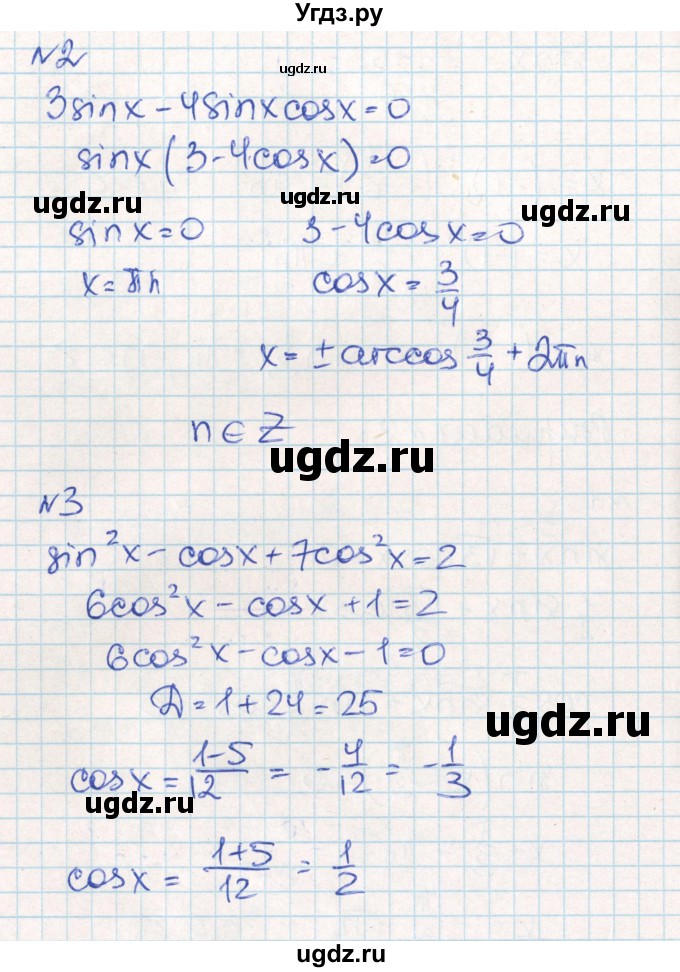 Угдз.ру
№2
ugdz.ru
3sinx - 4sinxcosx = 0
sinx(3 - 4cosx) = 0
ugdz.ru ugdz.ru
sinx = 0 3 - 4cosx = 0
x = πn cosx = 3/4
x = ± arccos 3/4 + 2πn
n ∈ Z
ugdz.ru
№3
sin²x - cosx + 7cos²x = 2
6cos²x - cosx + 1 = 2
6cos²x - cosx - 1 = 0
D = 1 + 24 = 25
ugdz.ru
cosx = (1-5)/12 = -4/12 = -1/3
ugdz.ru
cosx = (1+5)/12 = 1/2
ugdz.ru